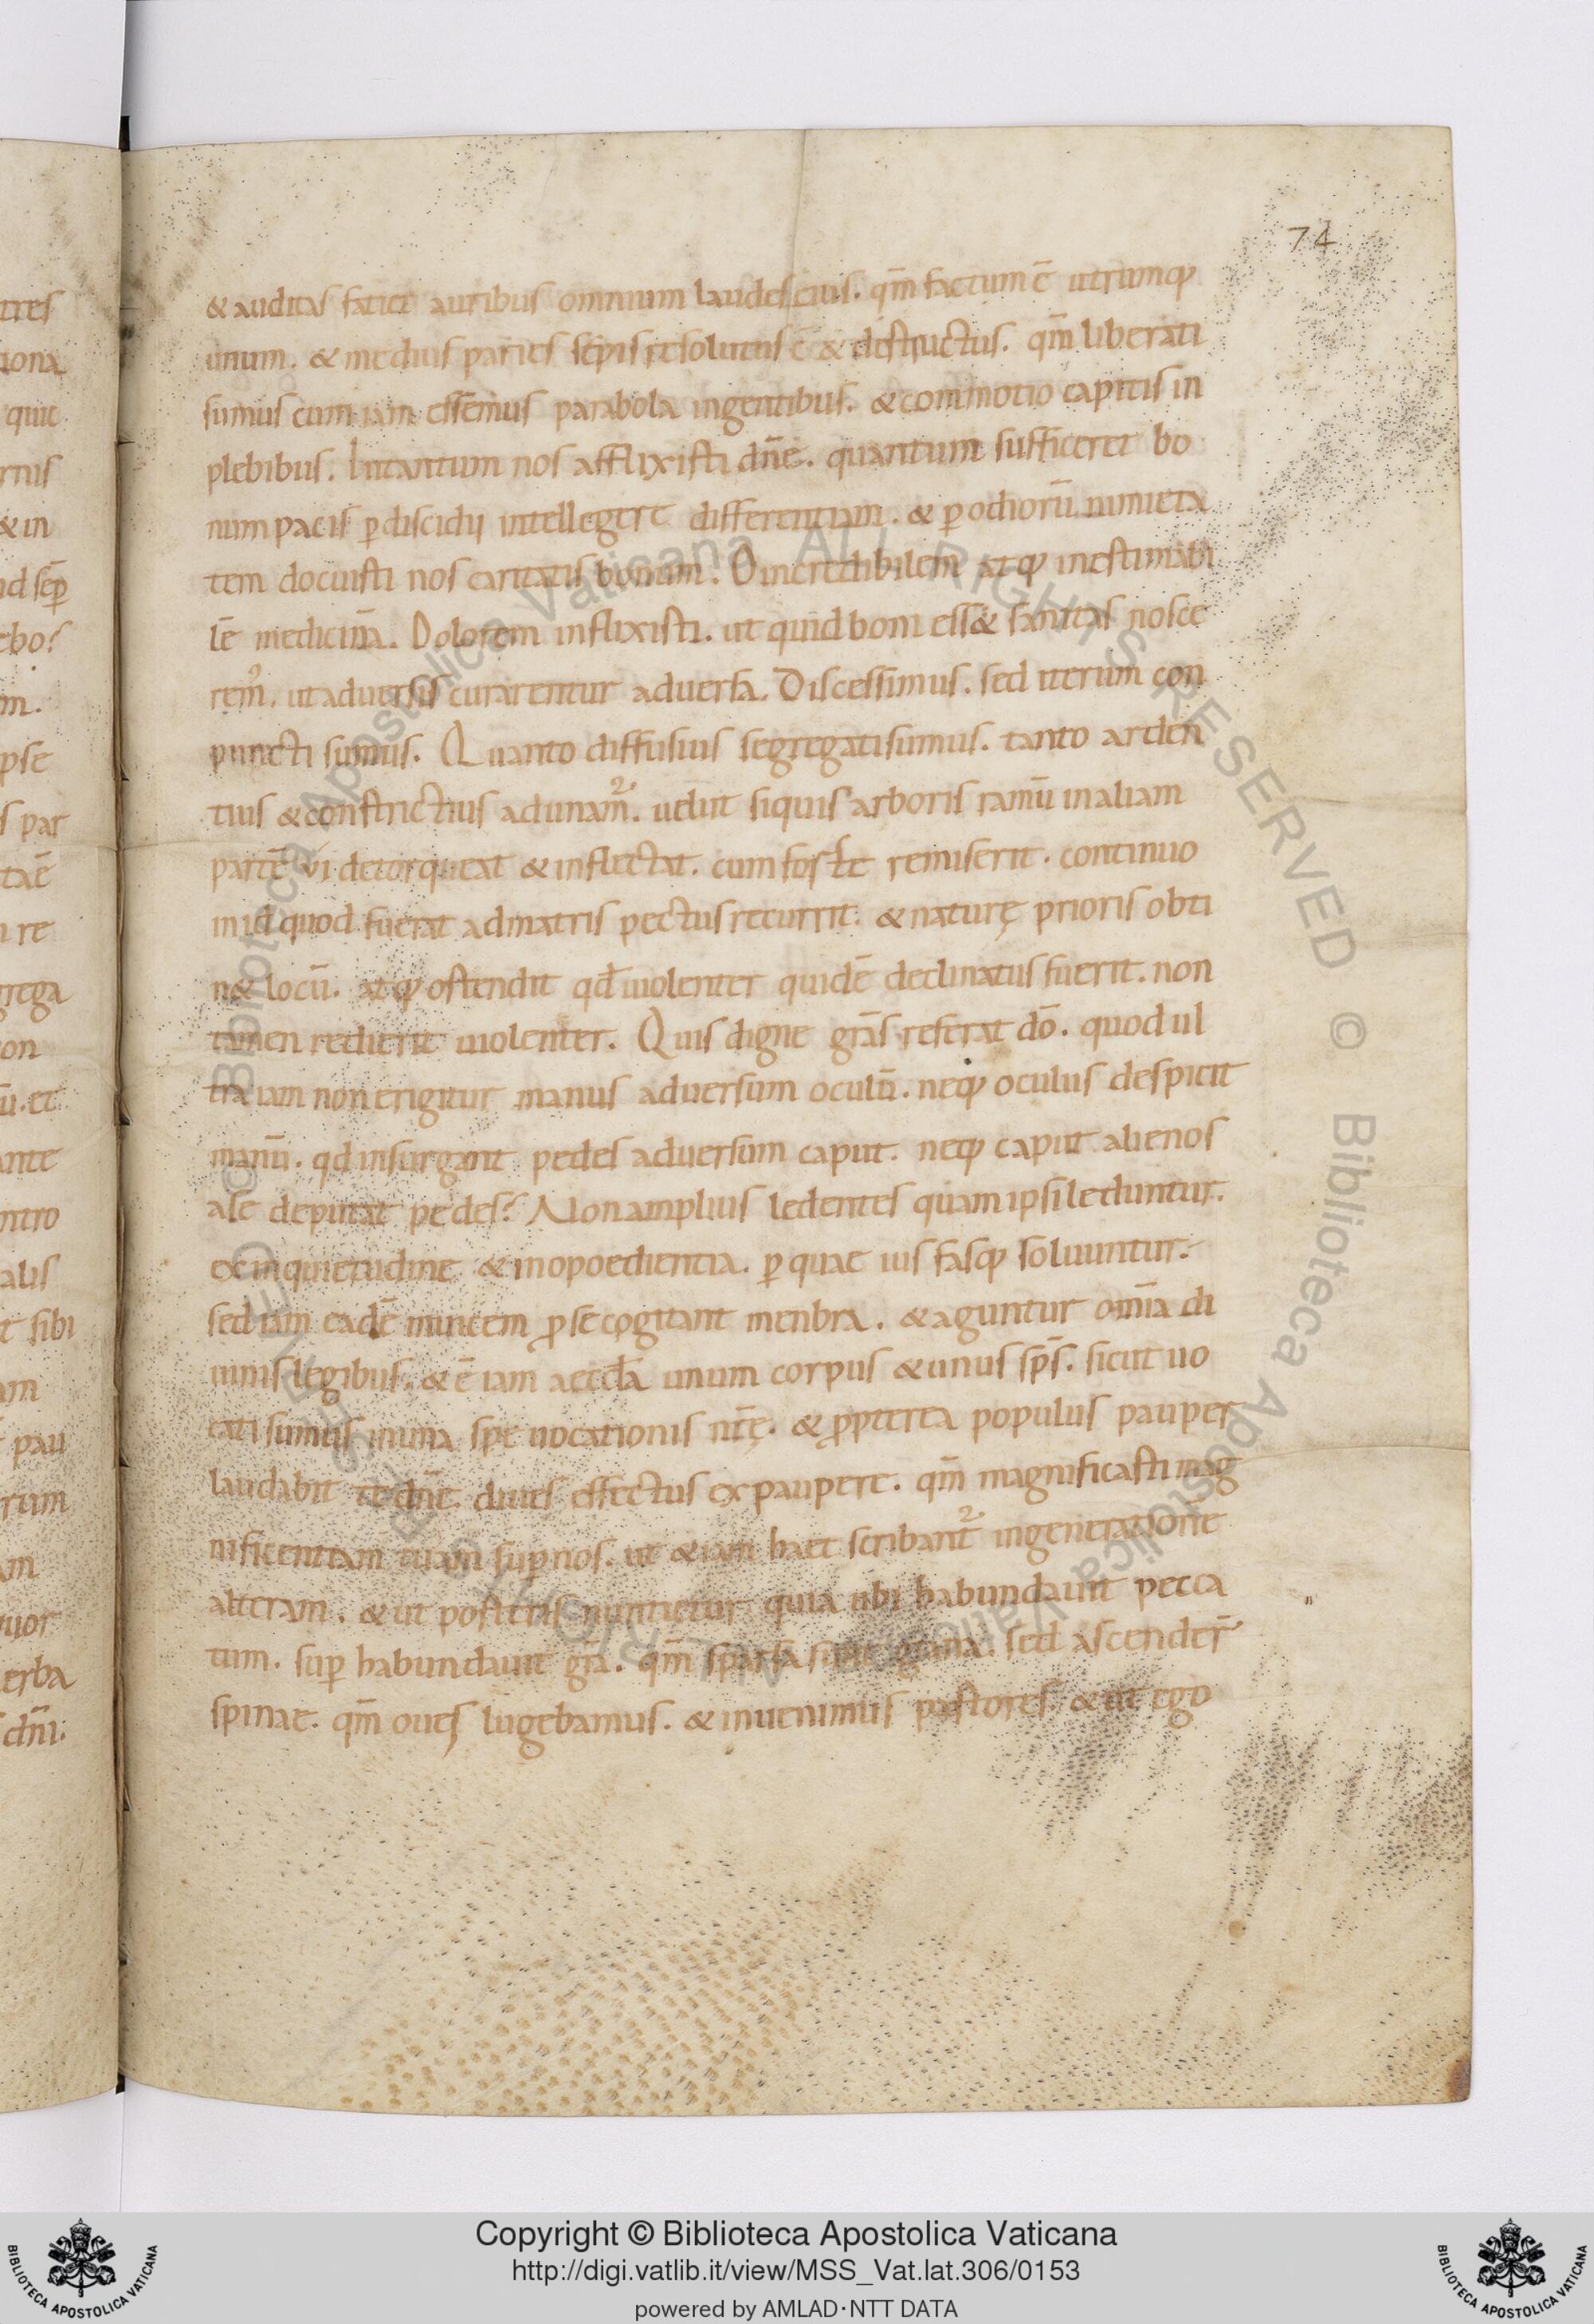 74
& auditas faciet auribus omnium laudes eius. qm̄ factum ē utrumq;
unum. & medius paries sepis resolutus ē & destructus. qm̄ liberati
sumus cum iam essemus parabola ingentibus. & commotio capitis in
plebibus. Intantum nos afflixisti dn̄e. quantum sufficeret bo
num pacis ꝑ discidij intellegere differentiam. & ꝑ odiorū nimieta
tem docuisti nos caritatis bonum. O incredibilem atq; inestimabi
lē medicinā. Dolorem inflixisti. ut quid boni ess& sanitas nosce
rem̄. ut aduersis curarentur aduersa. Discessimus. sed iterum con
puncti sumus. Quanto diffusius segregati sumus. tanto arden
tius & constrictius adunam̄. uelut siquis arboris ramū in aliam
partē vi detorqueat & inflectat. cum forte remiserit. continuo
in id quod fuerat ad matris pectus recurrit. & naturę prioris obti
n& locū. atq; ostendit qd̄ uiolenter quidē declinatus fuerit. non
tamen redierit uiolenter. Quis digne grās referat dō. quod ul
tra iam non erigitur manus aduersum oculū. neq; oculus despicit
manū. qd insurgant pedes aduersum caput. neq; caput alienos
a se deputat pedes? Non amplius ledentes quam ipsi leduntur.
ex inquietudine & inopoedientia. ꝑ quae ius fasq; soluuntur.
sed iam eadē inuicem ꝓ se cogitant menbra. & aguntur om̄ia di
uinis legibus. & ē iam aeccƚa unum corpus & unus sp̄s. sicut uo
cati sumus in una spe uocationis nr̄ę. & ꝓpterea populus pauper
laudabit te dn̄e. diues effectus ex paupere. qm̄ magnificasti mag
nificentiam tuam suꝑ nos. ut &iam haec scribant̄ in generatione
alteram. & ut posteris nuntietur quia ubi habundauit pecca
tum. suꝑ habundauit grā. qm̄ sparsa sunt grana. sed ascender̄
spinae. qm̄ oues lugebamus. & inuenimus pastores. & ut ego
tres
iona
quic
rnis
& in
id sēꝑ
ebo?
m.
pse
s par
taē
n re
grega
on
ū. et
ante
ntro
alis
t sibi
am
pau
rum
am
uor
erba
dn̄i.
Copyright © Biblioteca Apostolica Vaticana
http://digi.vatlib.it/view/MSS_Vat.lat.306/0153
powered by AMLAD·NTT DATA
BIBLIOTECA APOSTOLICA VATICANA
BIBLIOTECA APOSTOLICA VATICANA